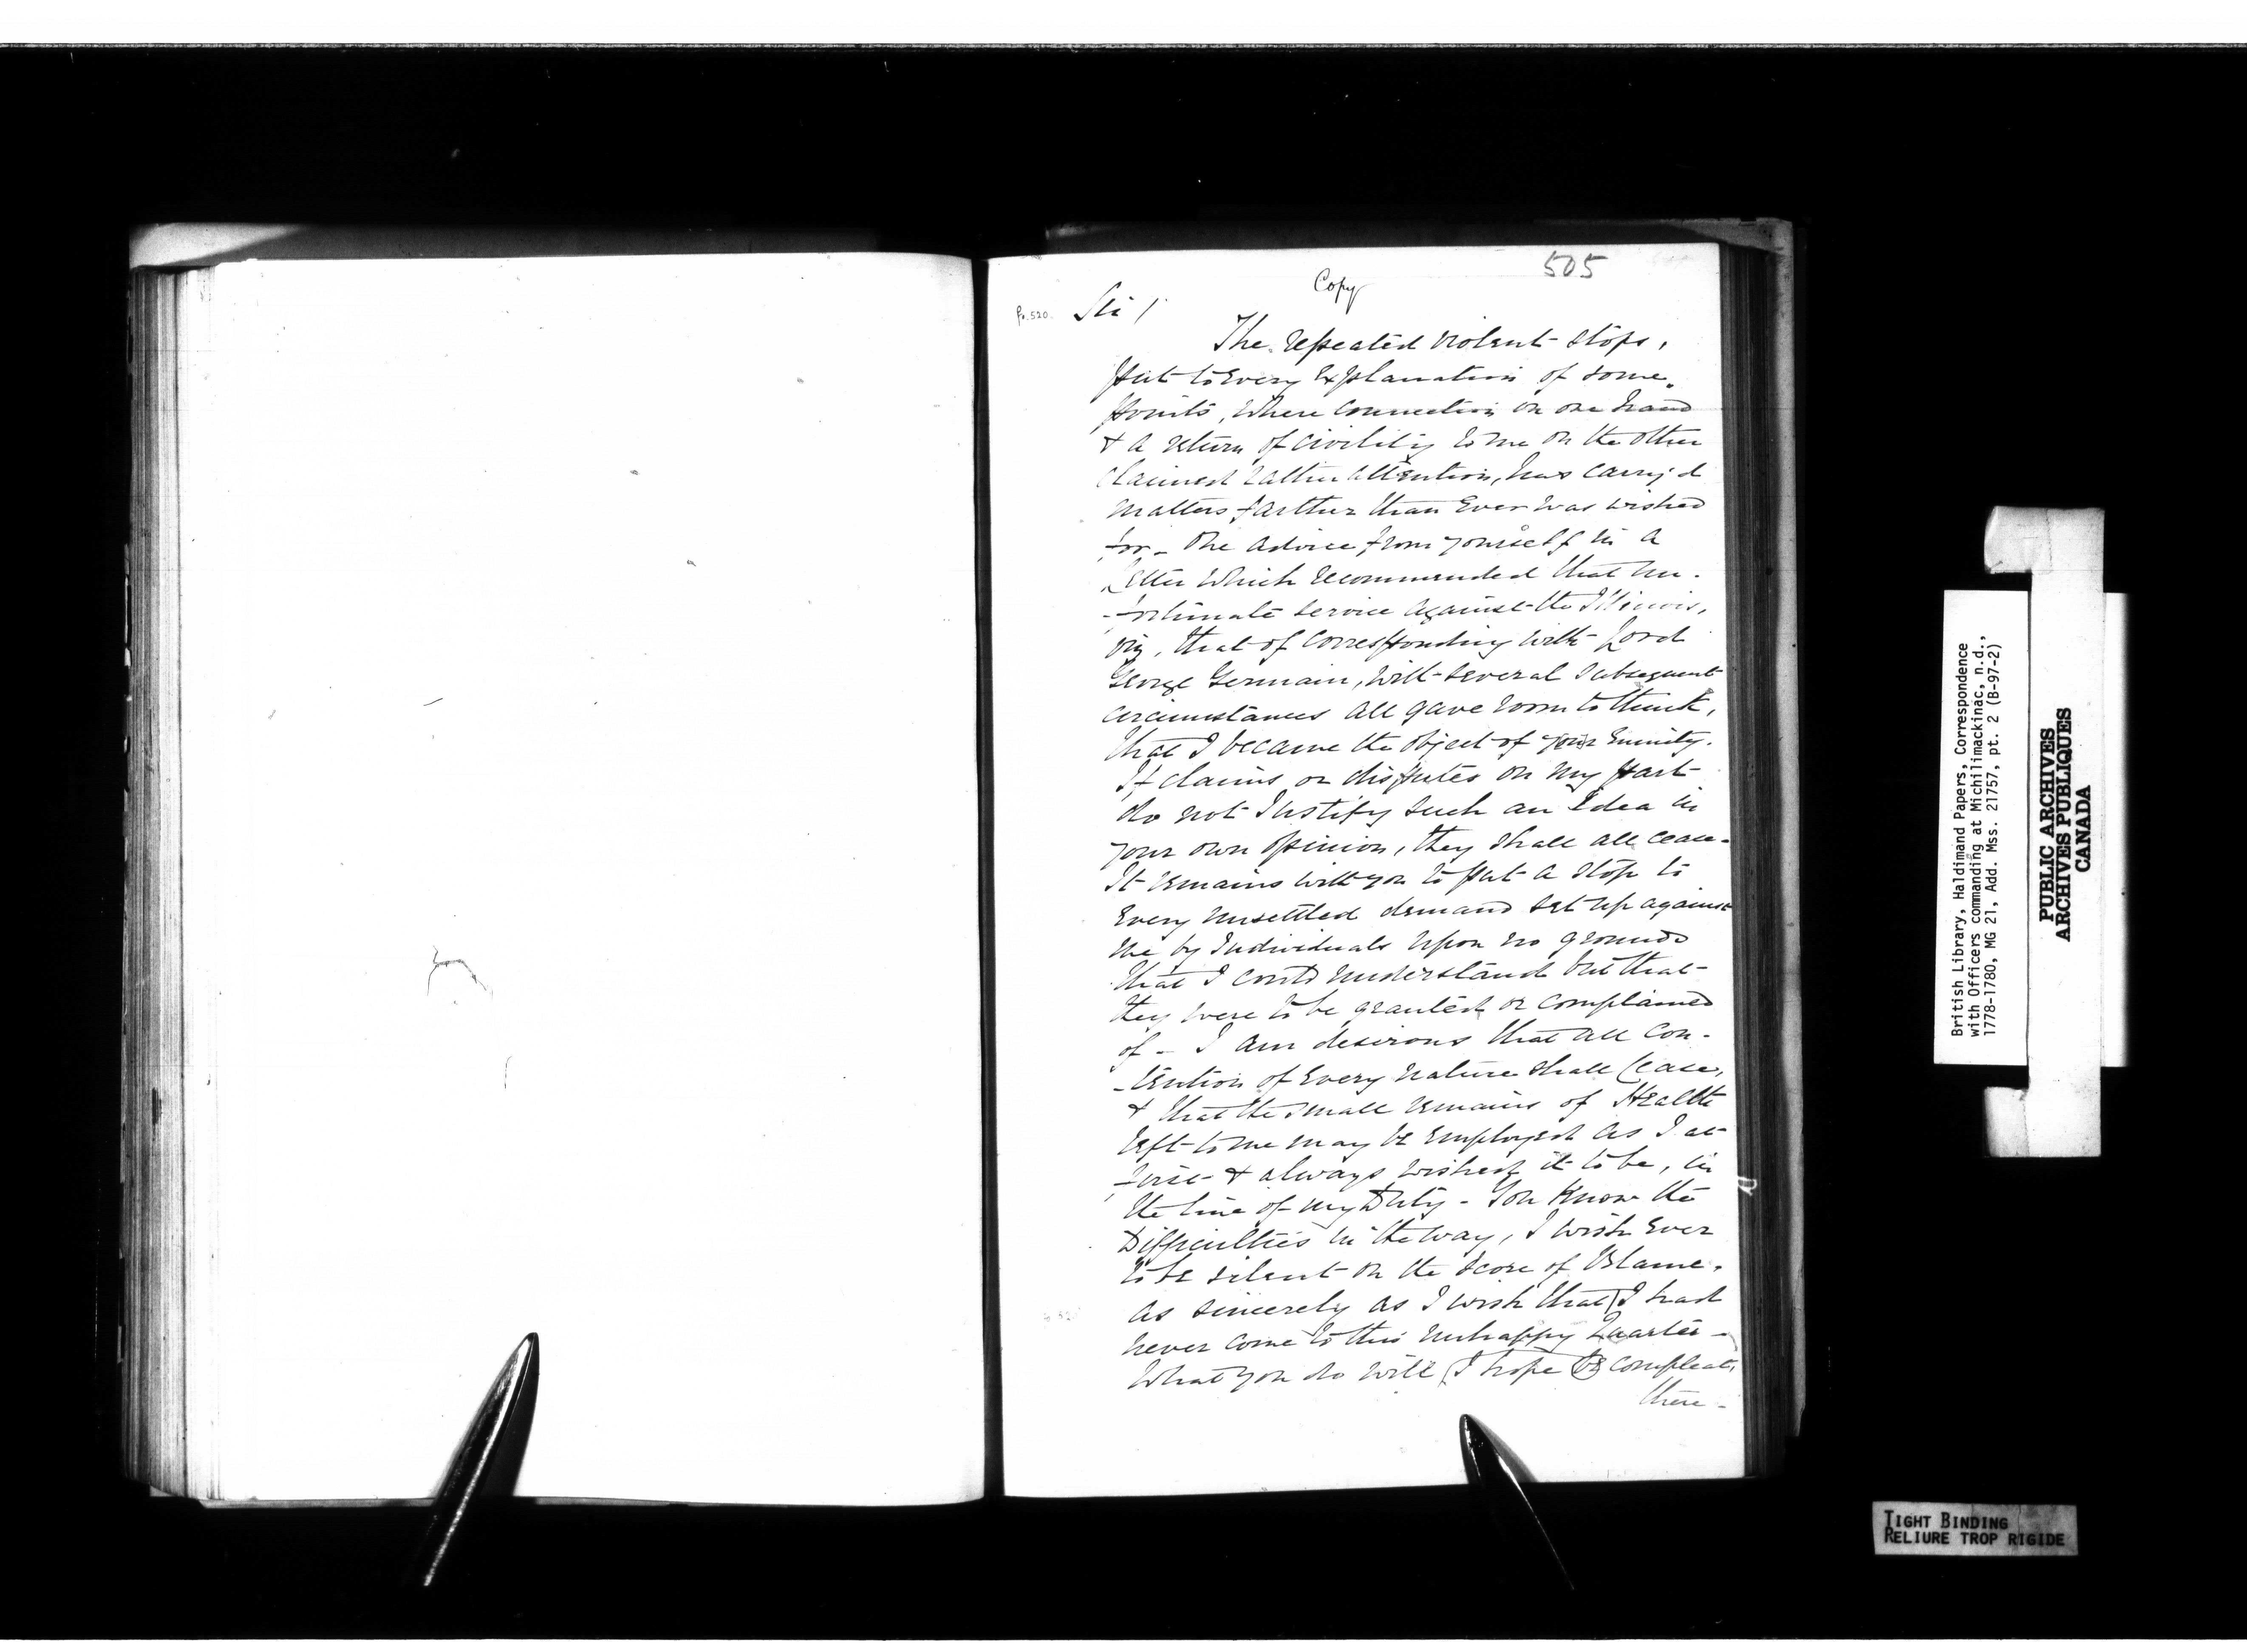 505
Copy
fo. 520.
Sir /
The repeated violent stops,
put to Every Explanation of some
points, where connection on one hand
& a return of civility to me on the other
claimed rather attention, has carry'd
matters farther than Ever was wished
for _ The advice from yourself in a
Letter which recommended that un-
-fortunate service against the Illinois,
viz, that of corresponding with Lord
George Germain, with several subsequent
circumstances all gave room to think,
that I became the object of your Enmity.
If claims or disputes on my part
do not Justify such an Idea in
your own opinion, they shall all cease-
It remains with you to put a stop to
Every unsettled demand set up against
me by Individuals upon no grounds
that I could understand but that
they were to be granted or complained
of - I am desirous that all con-
-tention of Every nature shall Cease,
& that the small remains of Health
left to me may be Employed as I at
first & always wished it to be, in
the line of my Duty - You Know the
Difficulties in the way, I wish Ever
to be silent on the score of Blame,
as sincerely as I wish that I had
never come to this unhappy Quarter -
What you do will (I hope be compleat,
there -
British Library, Haldimand Papers, Correspondence
with Officers commanding at Michilimackinac, n.d.,
1778-1780, MG 21, Add. Mss. 21757, pt. 2 (B-97-2)
PUBLIC ARCHIVES
ARCHIVES PUBLIQUES
CANADA
TIGHT BINDING
RELIURE TROP RIGIDE